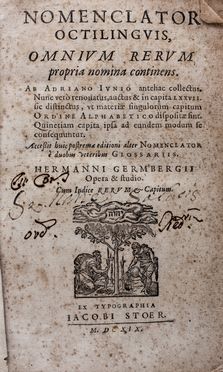 NOMENCLATOR
OCTILINGVIS,
OMNIVM RERVM
propria nomina continens.
AB ADRIANO IVNIO antehac collectus.
Nunc verò renouatus, auctus & in capita LXXVII.
sic distinctus, vt materiæ singulorum capitum
ORDINE ALPHABETICO dispositæ sint.
Quinetiam capita ipsa ad eundem modum se
consequuntur.
Accessit huic postremæ editioni alter NOMENCLATOR
è duobus veteribus GLOSSARIIS.
HERMANNI GERMBERGII
Opera & studio.
Cum Indice RERVM & Capitum.
EX TYPOGRAPHIA
IACOBI STOER.
M. DC XIX.